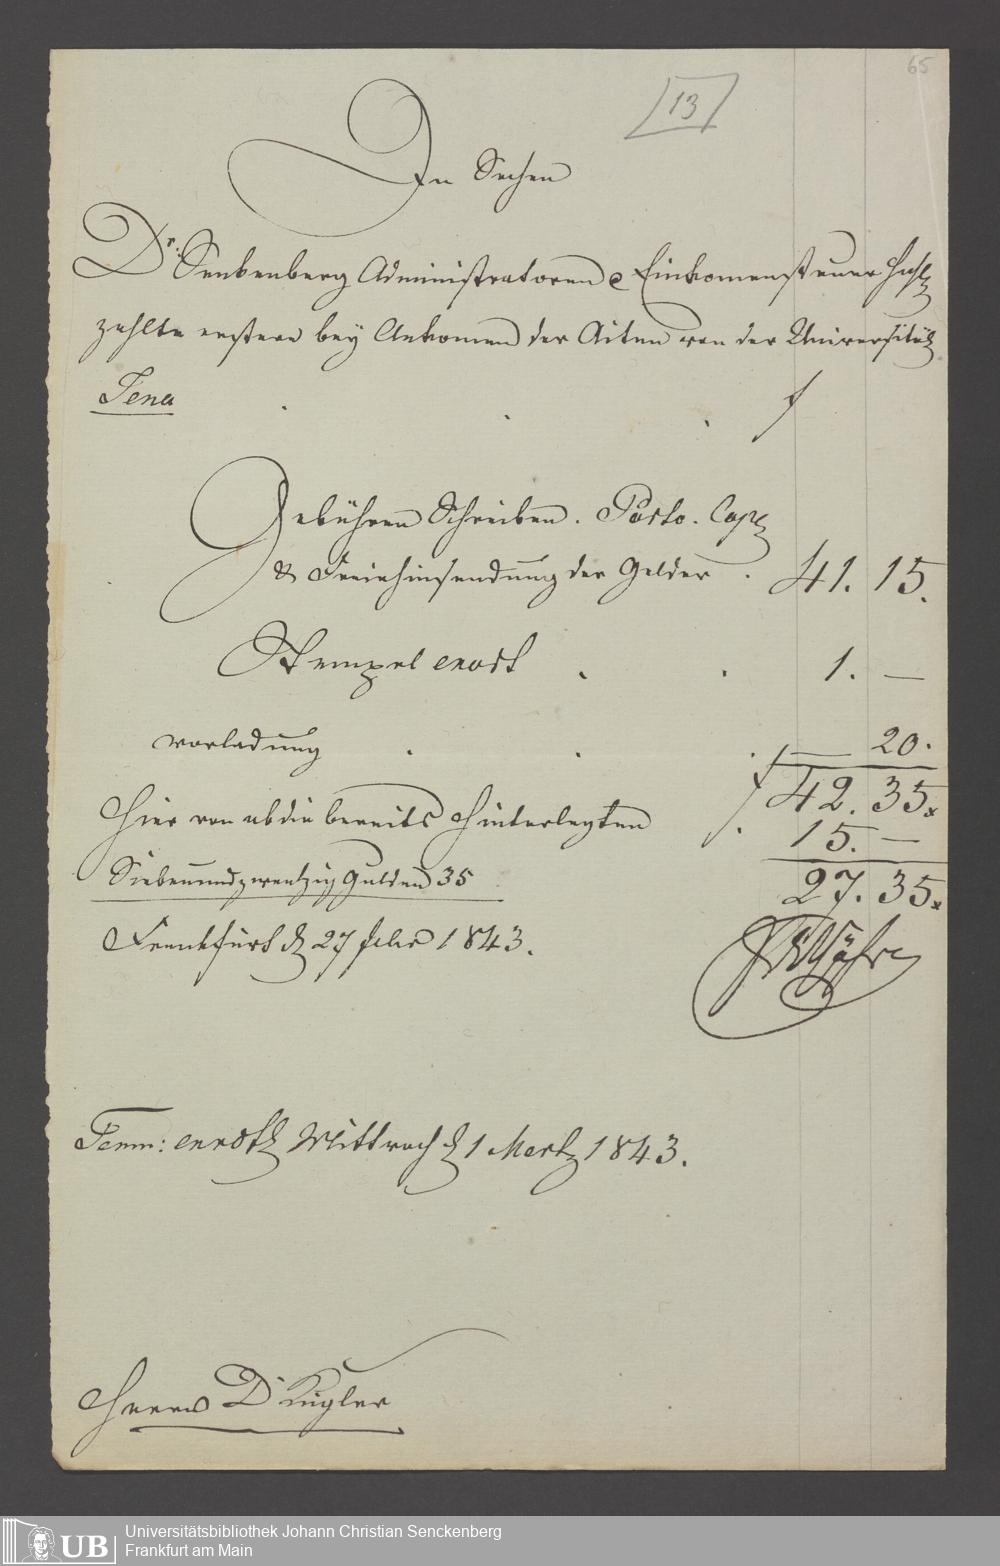 65
13
In Sachen
Dr: Senkenberg Administratoren c Einkomensteuer
zahlte erstere bey Ankomen der Akten von der Universität
Jena . . . f
Gebühren Schreiben. Porto. Copz
& Freieinsendung der Gelder . 41. 15.
Stempel . . 1. —
Vorladung . . . — 20.
f 42. 35x
Hier von ab die bereits hinterlegten . 15. —
Siebenundzwanzig Gulden 35 27. 35x
Frankfurt d 27 Febr 1843.
Mittwoch d 1 Mertz 1843.
Herrn Dr Kugler
UB Universitätsbibliothek Johann Christian Senckenberg
Frankfurt am Main